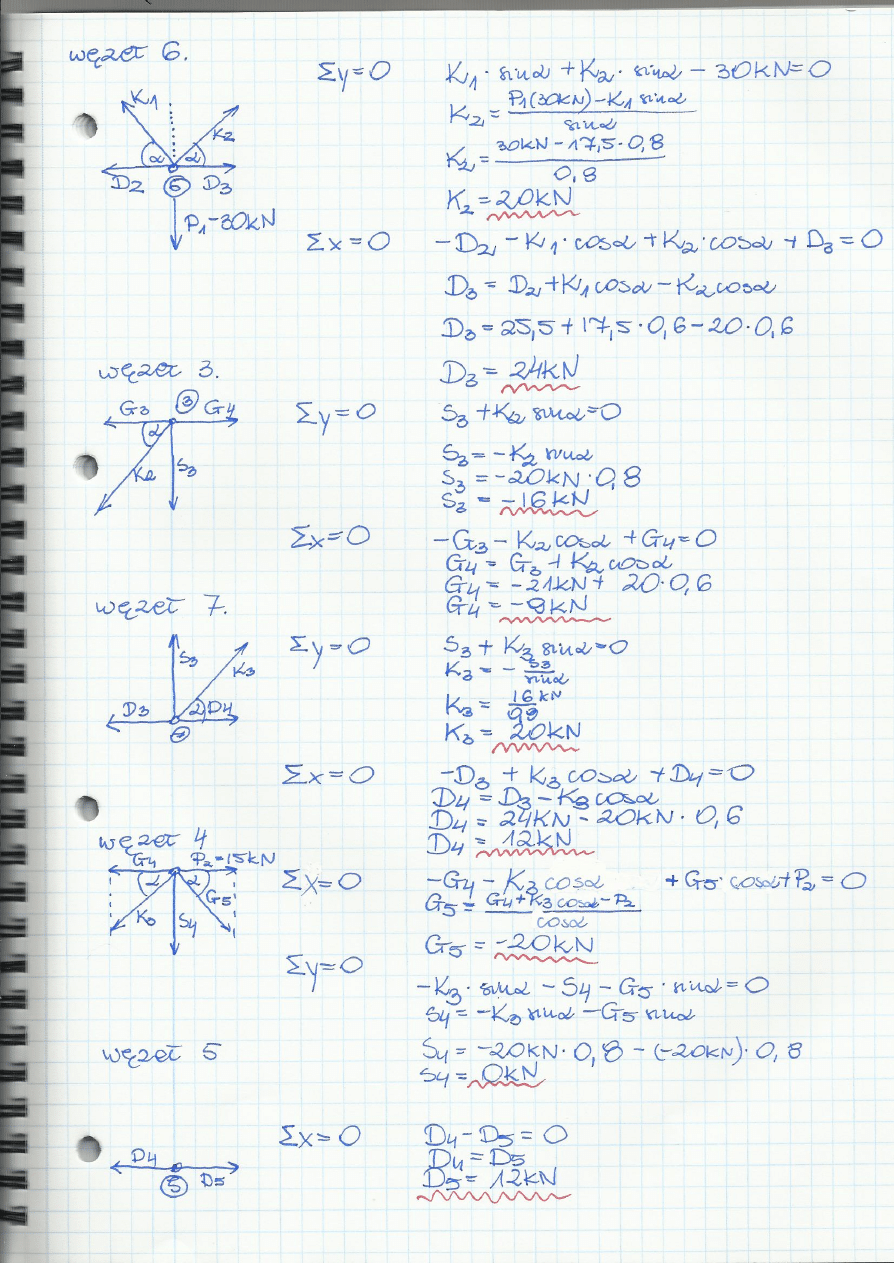 węzeł 6.
Σy=0 K1·sinα+K2·sinα-30kN=0
K1
K2
α α
D2 6 D3
P1-30kN
K2=P1(30kN)-K1 sinα/sinα
K2=30kN-17,5·0,8/0,8
K2=20kN
Σx=0 -D2-K1·cosα+K2·cosα+D3=0
D3=D2+K1cosα-K2cosα
D3=25,5+17,5·0,6-20·0,6
D3=24kN
węzeł 3.
G3 3 G4
α
K2 S3
Σy=0 S3+K2 sinα=0
S3=-K2 sinα
S3=-20kN·0,8
S3=-16kN
Σx=0 -G3-K2cosα+G4=0
G4=G3+K2cosα
G4=-21kN+ 20·0,6
G4=-9kN
węzeł 7.
S3 K3
D3 α D4
7
Σy=0 S3+K3 sinα=0
K3=-S3/sinα
K3=16kN/
K3=20kN
Σx=0 -D3+K3cosα+D4=0
D4=D3-K3cosα
D4=24kN-20kN·0,6
D4=12kN
węzeł 4
G4 P2=15kN
α α
K3 S4 G5
Σx=0 -G4-K3cosα +G5·cosα+P2=0
G5=G4+K3cosα-P2/cosα
G5=-20kN
Σy=0 -K3·sinα-S4-G5·sinα=0
S4=-K3sinα-G5sinα
S4=-20kN·0,8-(-20kN)·0,8
S4=0kN
węzeł 5
D4
5 D5
Σx=0 D4-D5=0
D4=D5
D5=12kN